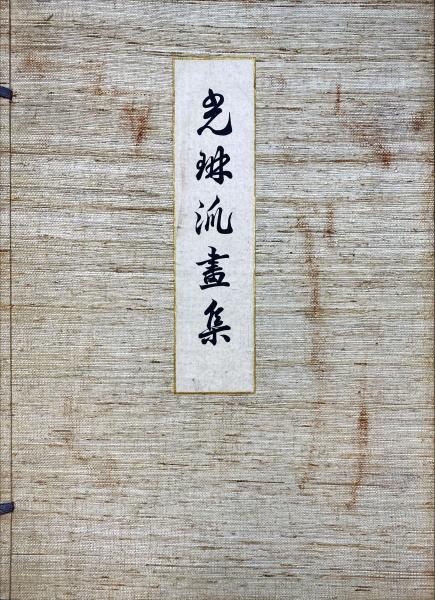 光琳派畫集